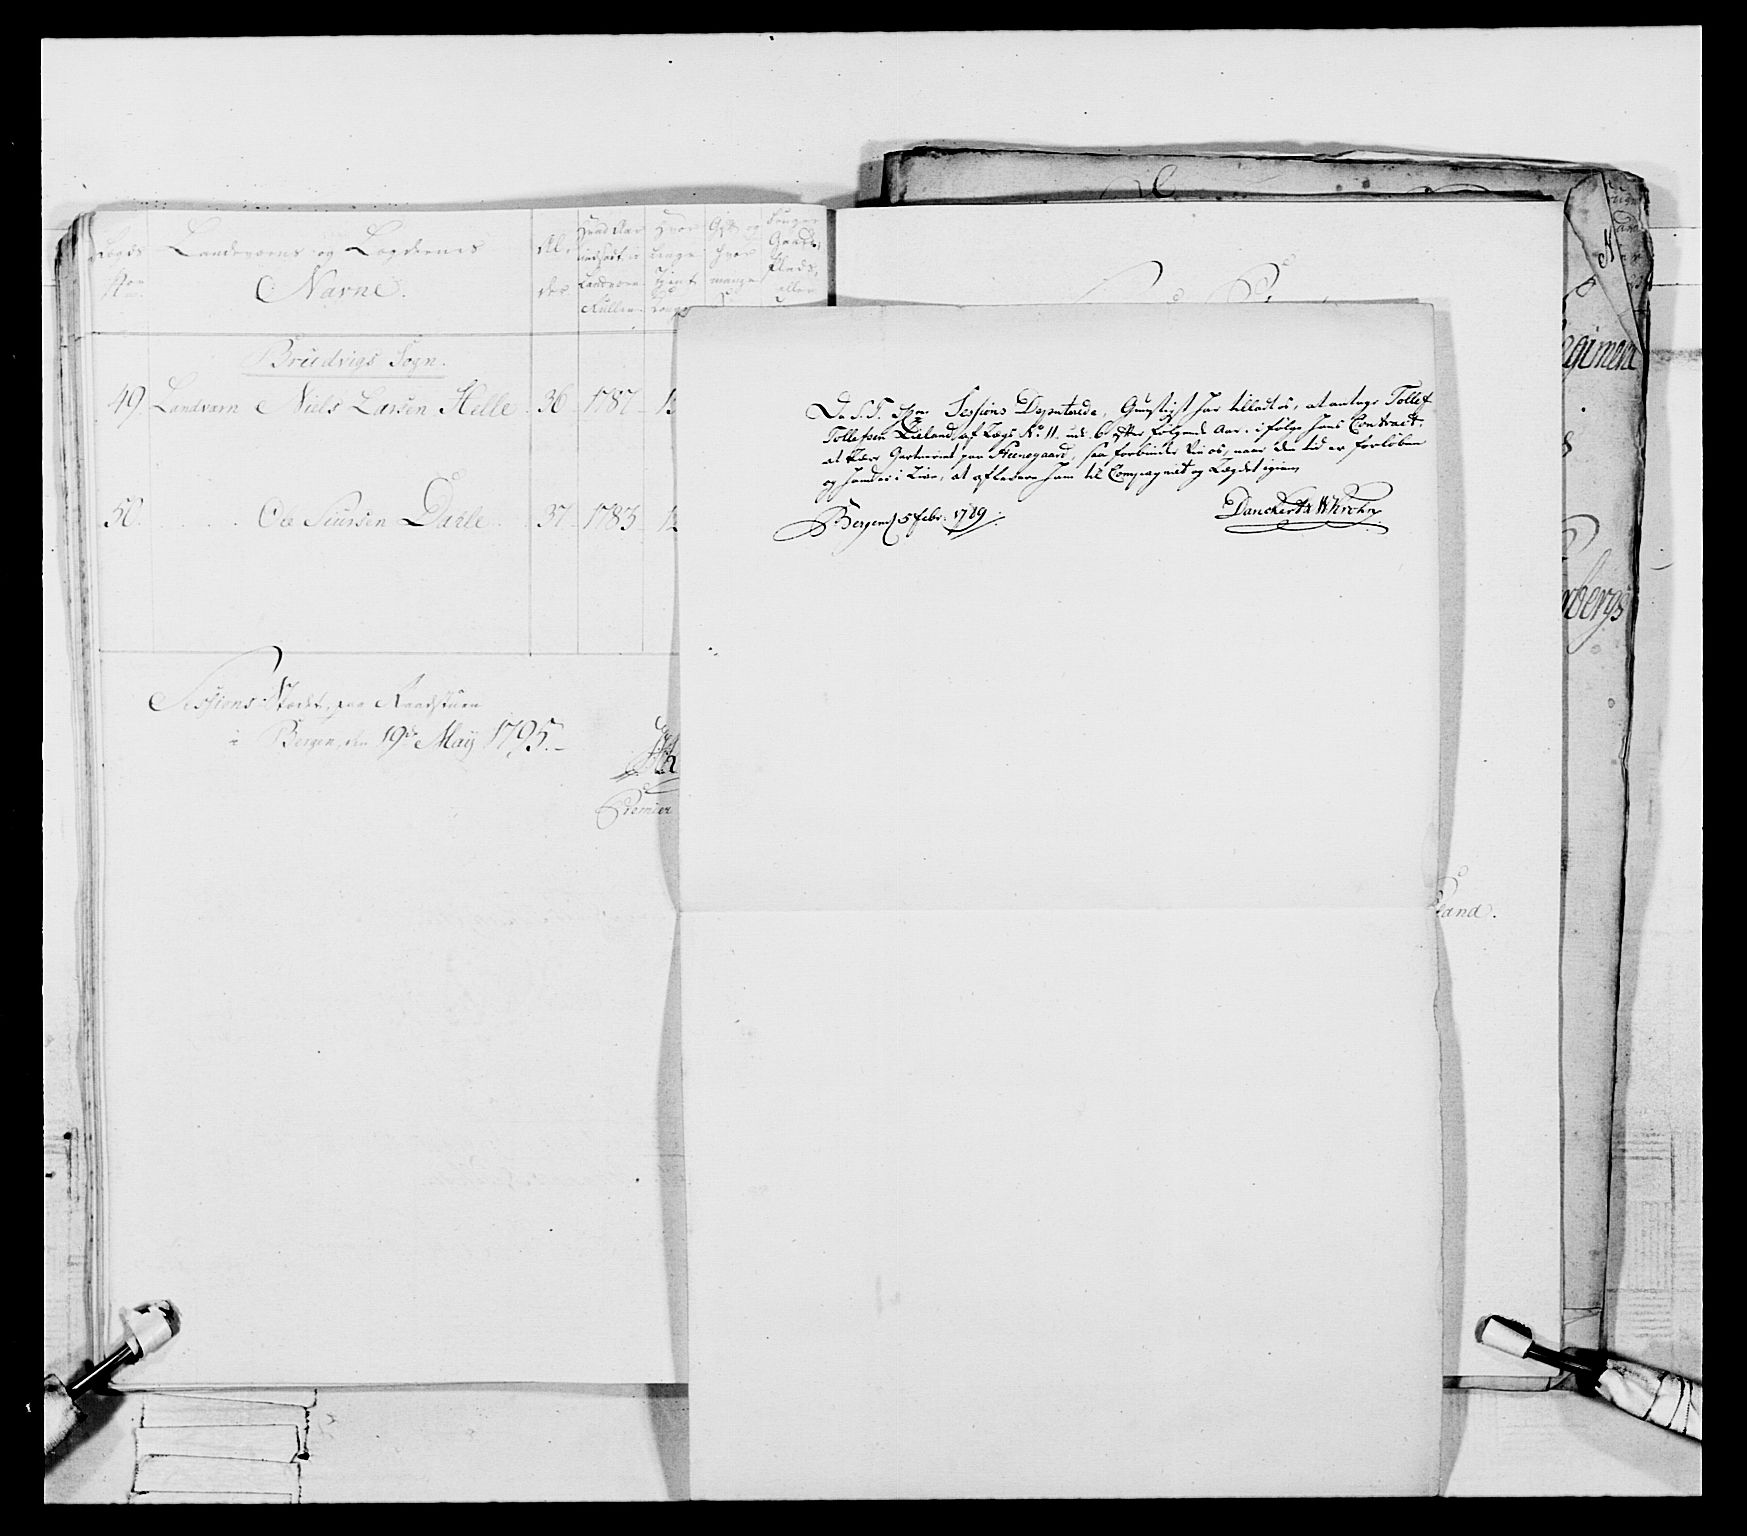 Lægds
No
Landværns og Lægdernes
Navne.
Al-
der
Hvad Aar
indsadt i
Landværn
Rullen
Hvor
længe
tjent
Gift og
hvor
mange
bruger
Gaard,
Plads,
eller
Brudvigs Sogn.
49. Landværn Niels Larsen Helle 36 1787
50. Ole Siursen Dahle 37 1783
Sessions Stædet, paa Raadstuen
i Bergen, den 19de May 1795.
Premier
De S. T. Herrer Sessions Deputerede, Gunstigst har tilladt os, at antage Tollef
Tollefsen Lieland, af Lægd No 11. udi 6 efter følgende Aar, i følge hans Contract,
at lære Garteneriet paa Steensgaard, saa forbinder vi os, naar den tid er forløben
og hand er i Live, at aflevere ham til Compagniet og Lægdet igien
Bergen 5 febr: 1789.
Danckert D. Krohn
land.
egiment
bergs